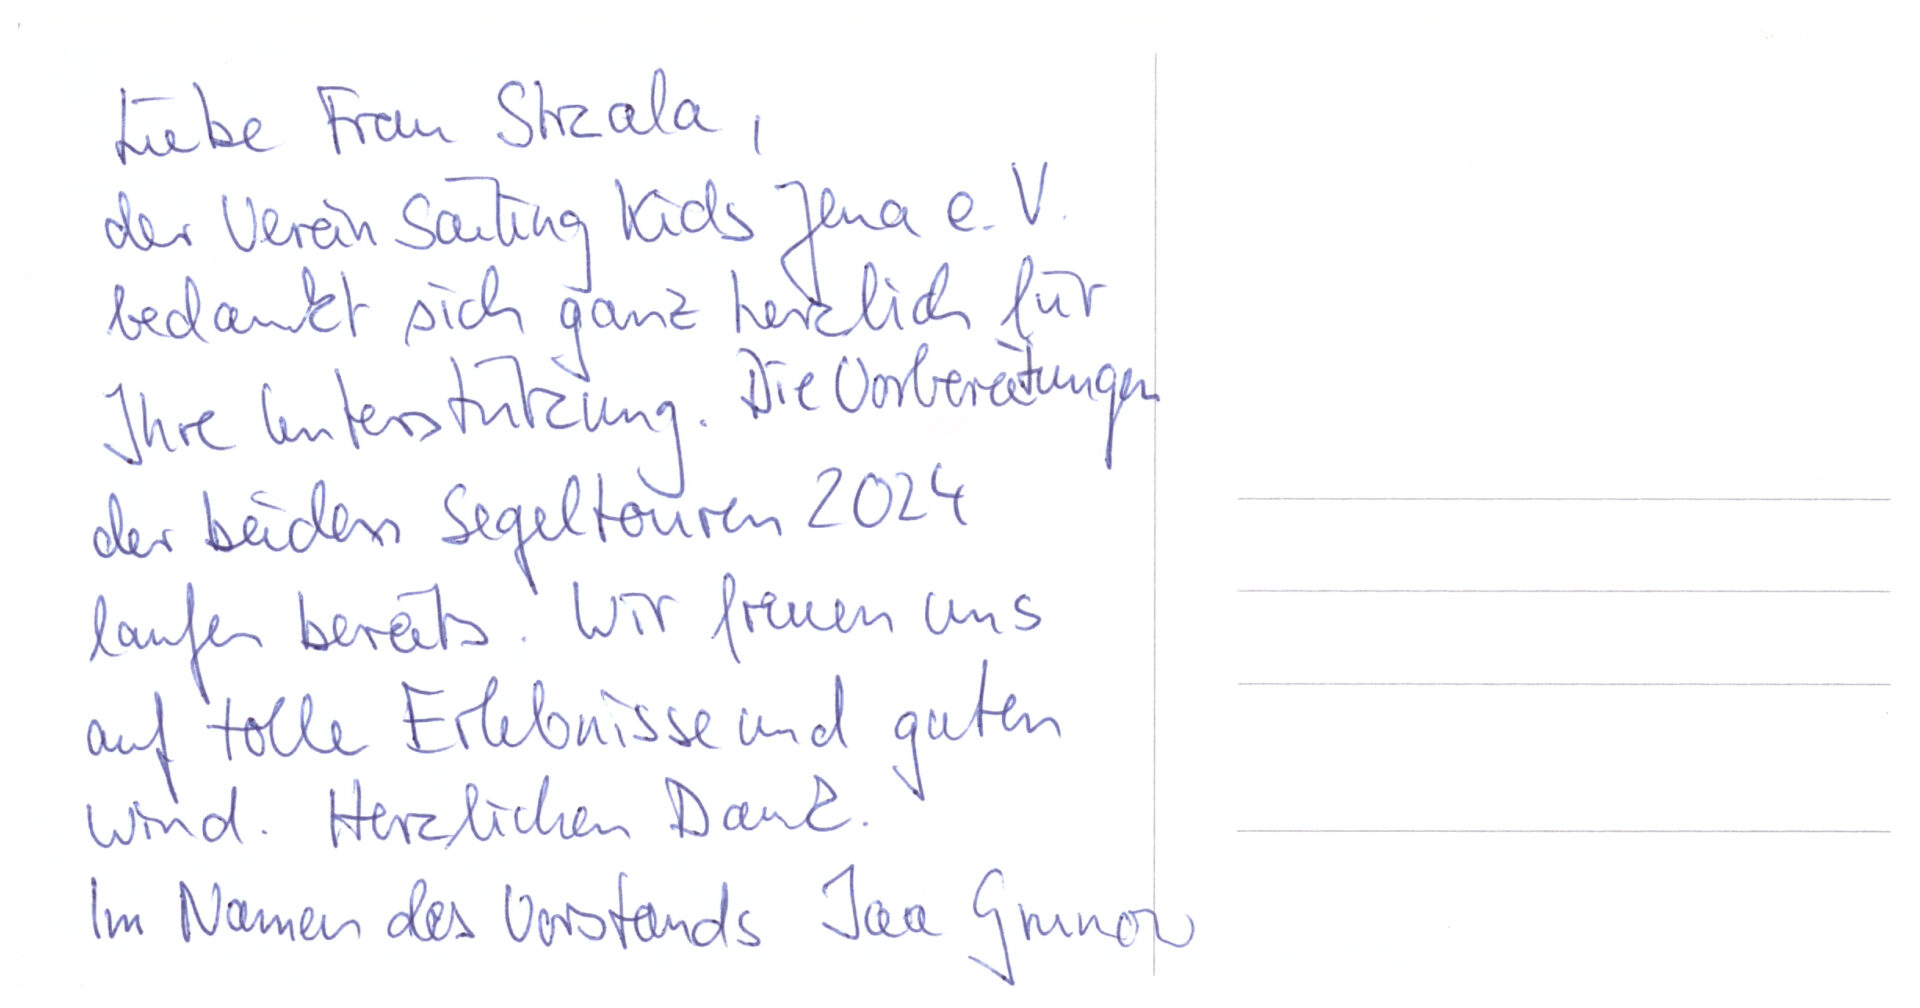 Liebe Frau Strzala,
der Verein Sailing Kids Jena e.V.
bedankt sich ganz herzlich für
Ihre Unterstützung. Die Vorbereitungen
der beiden Segeltouren 2024
laufen bereits. Wir freuen uns
auf tolle Erlebnisse und guten
Wind. Herzlichen Dank.
Im Namen des Vorstands Grunow